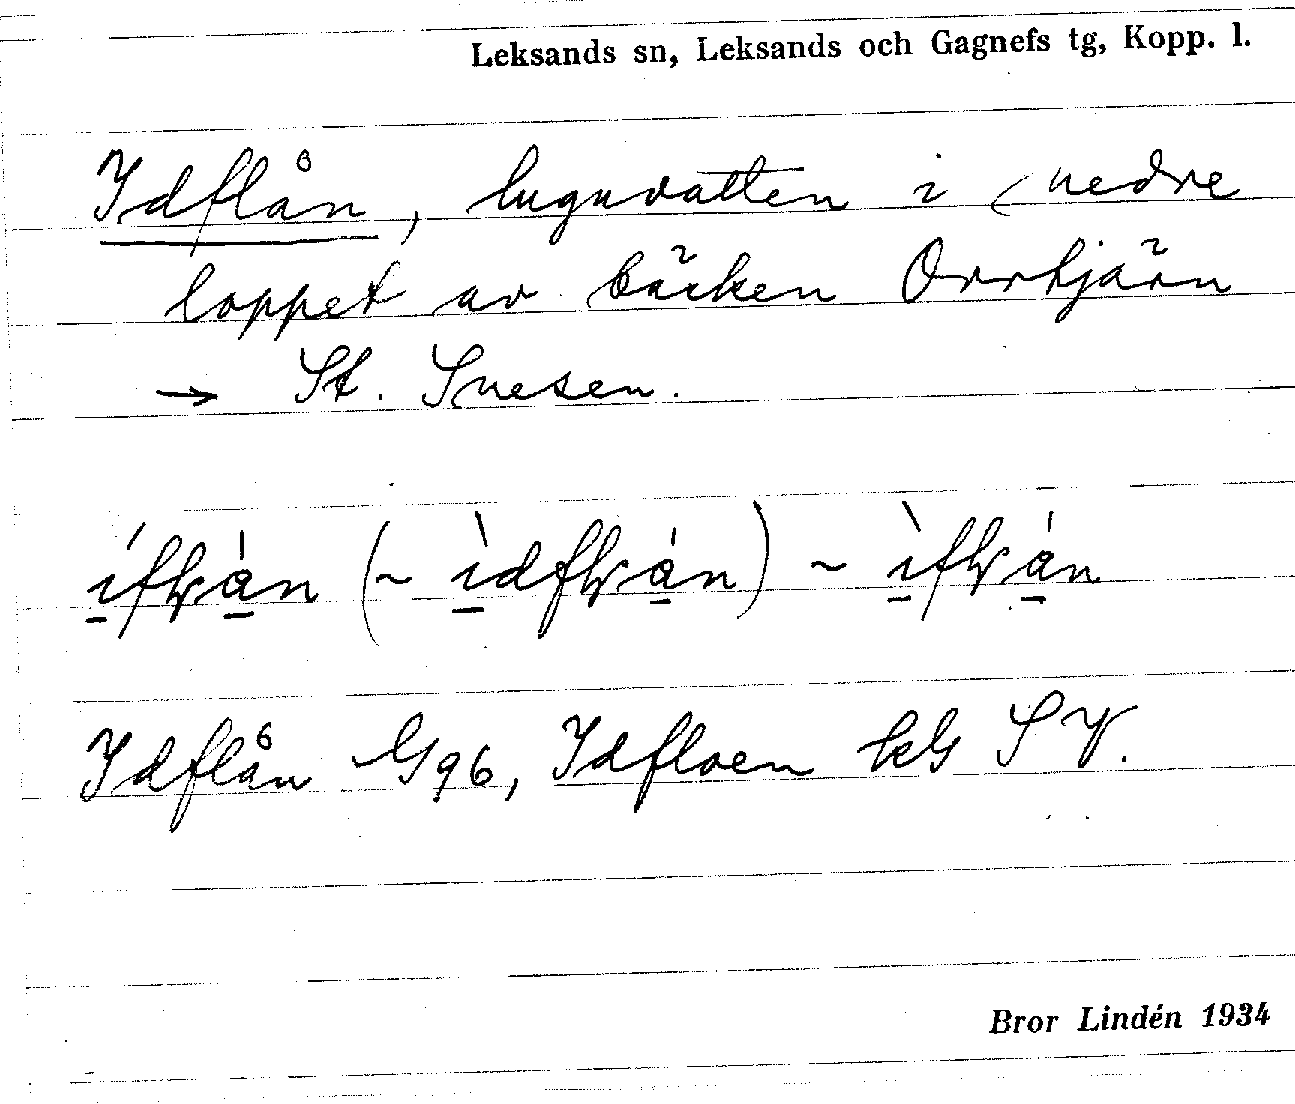 Leksands sn, Leksands och Gagnefs tg, Kopp. l.
Idflån, lugnvatten i (nedre
loppet av bäcken Orrtjärn
→ St. Snesen.
ífl̥àn (~ ìdfl̥án) ~ ìfl̥án
Idflån G96, Idfloen kG SV.
Bror Lindén 1934